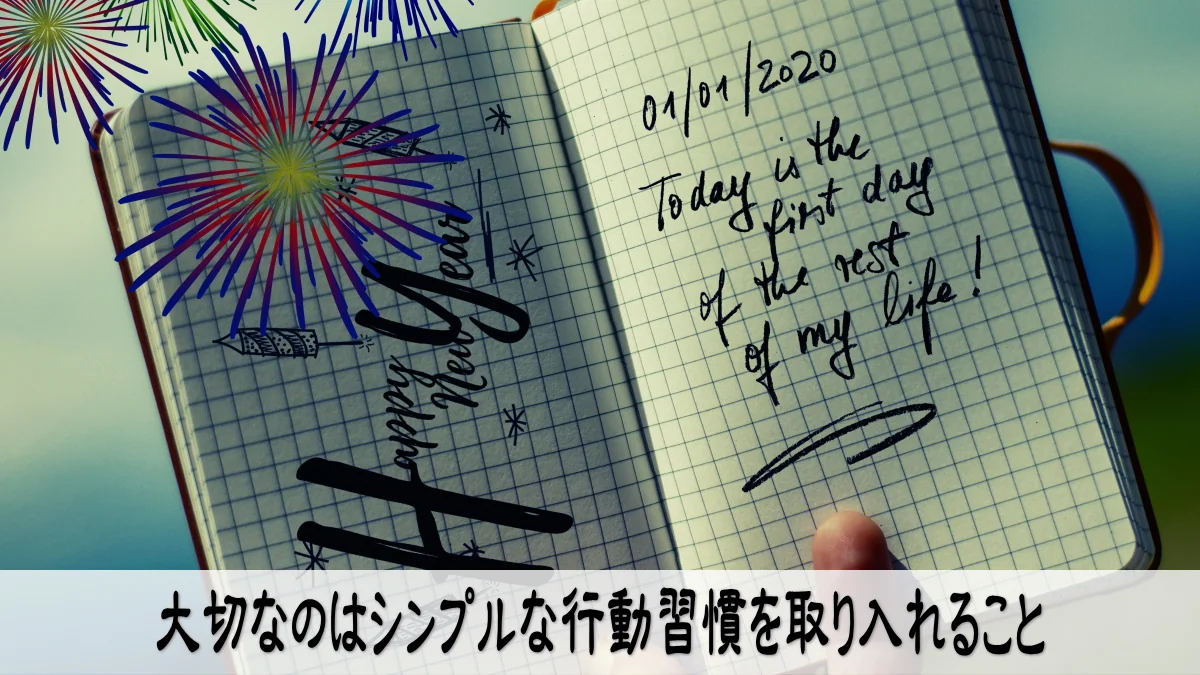 Happy
New Year
01/01/2020
Today is the
first day
of the rest
of my life!
大切なのはシンプルな行動習慣を取り入れること